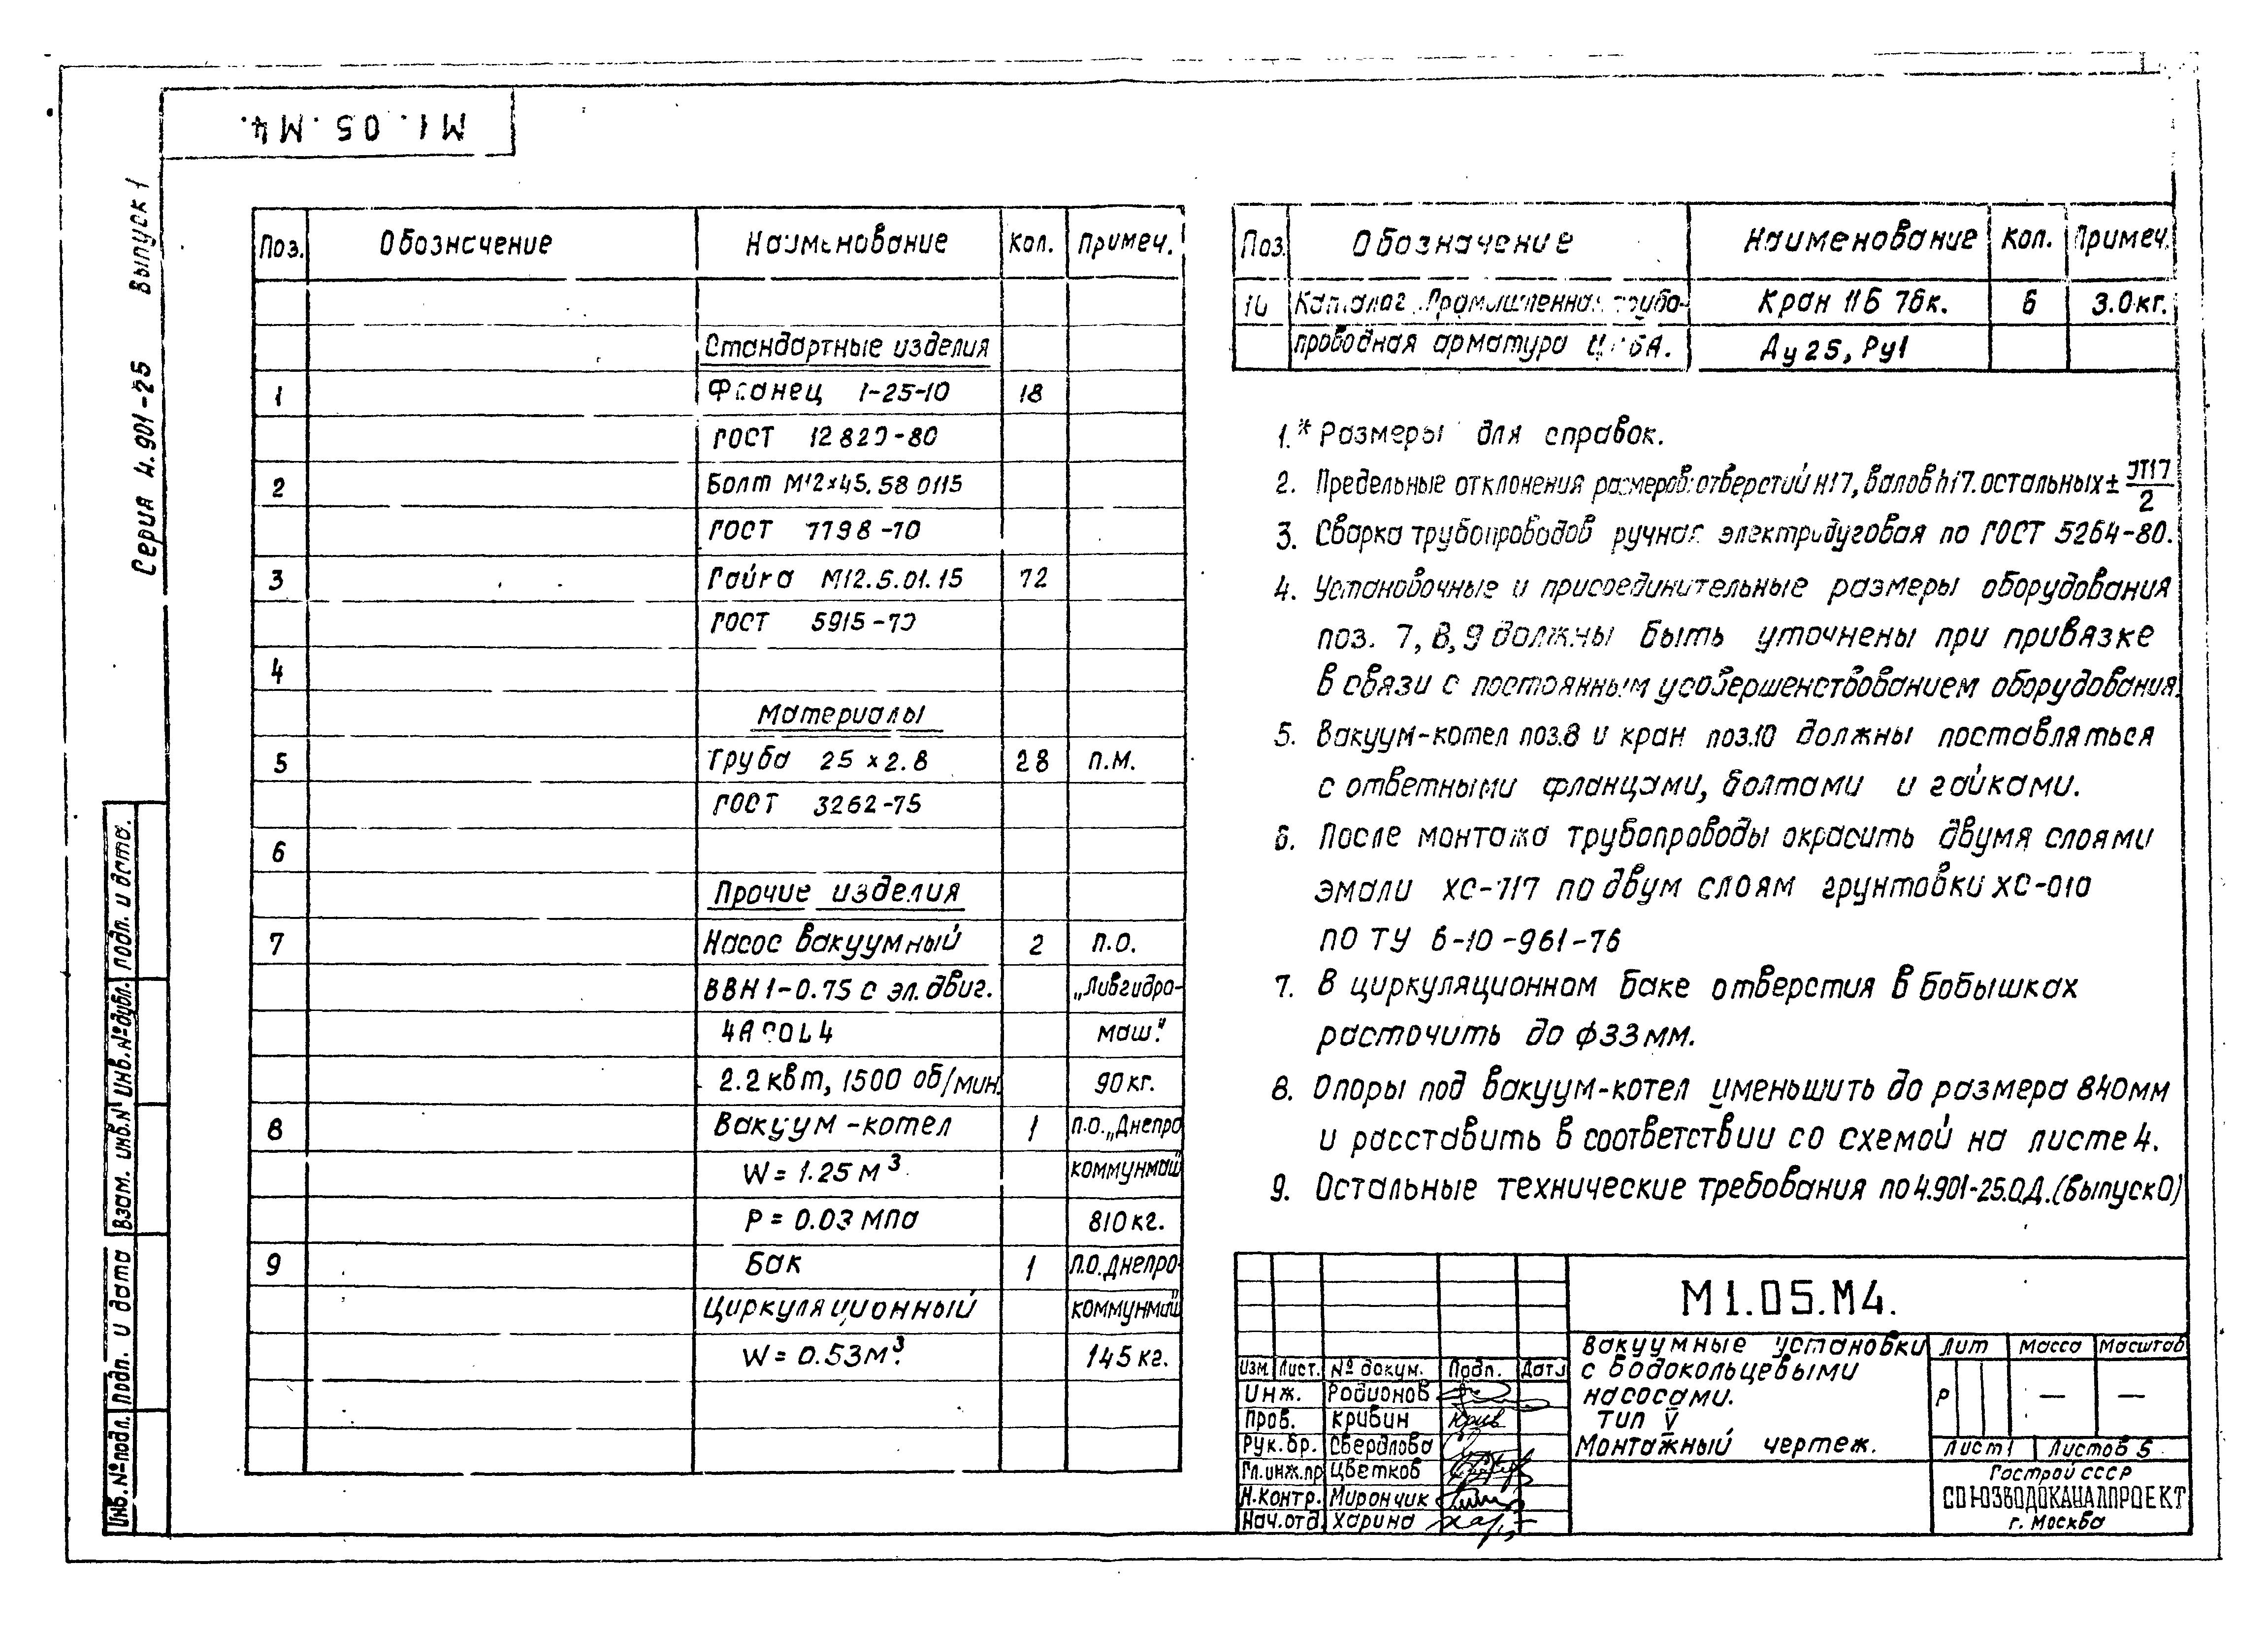 М1.05.М4.
Серия 4.901-25 Выпуск 1
Поз. Обозначение Наименование Кол. Примеч.
Стандартные изделия
1 Фланец 1-25-10 18
ГОСТ 12820-80
2 Болт М12×45.58 0115
ГОСТ 7798-70
3 Гайка М12.5.01.15 72
ГОСТ 5915-70
4
Материалы
5 Труба 25×2.8 28 п.м.
ГОСТ 3262-75
6
Прочие изделия
7 Насос вакуумный 2 п.о.
ВВН1-0.75 с эл. двиг. „Ливгидро-
маш."
2.2 квт, 1500 об/мин. 90 кг.
8 Вакуум-котел 1 п.о. „Днепро
W = 1.25 м³. коммунмаш"
Р = 0.03 МПа 810 кг.
9 Бак 1 п.о. Днепро-
Циркуляционный коммунмаш"
W = 0.53 м³. 145 кг.
Поз. Обозначение Наименование Кол. Примеч.
10 Каталог „Промышленная трубо- Кран 11Б 7бк. 6 3.0 кг.
проводная арматура Ду 25, Ру1
1.* Размеры для справок.
2. Предельные отклонения размеров: отверстий Н17, валов h17. остальных ± JT17/2
3. Сварка трубопроводов ручная электродуговая по ГОСТ 5264-80.
4. Установочные и присоединительные размеры оборудования
поз. 7, 8, 9 должны быть уточнены при привязке
в связи с постоянным усовершенствованием оборудования.
5. Вакуум-котел поз.8 и кран поз.10 должны поставляться
с ответными фланцами, болтами и гайками.
6. После монтажа трубопроводы окрасить двумя слоями
эмали ХС-717 по двум слоям грунтовки ХС-010
по ТУ 6-10-961-76
7. В циркуляционном баке отверстия в бобышках
расточить до ф33мм.
8. Опоры под вакуум-котел уменьшить до размера 840мм
и расставить в соответствии со схемой на листе 4.
9. Остальные технические требования по 4.901-25.О.Д. (выпуск 0)
М1.05.М4.
Вакуумные установки
с водокольцевыми
насосами.
Тип V
Монтажный чертеж.
Лит Масса Масштаб
Р — —
Лист 1 Листов 5
Госстрой СССР
СОЮЗВОДОКАНАЛПРОЕКТ
г. Москва
Изм. Лист. № докум. Подп. Дата
Инж. Родионов
Пров. Кривин
Рук. бр. Свердлова
Гл. инж. пр Цветков
Н.контр. Мирончик
Нач. отд. Харина
Инв. № подл. Подп. и дата Взам. инв. № Инв. № дубл. Подп. и дата.